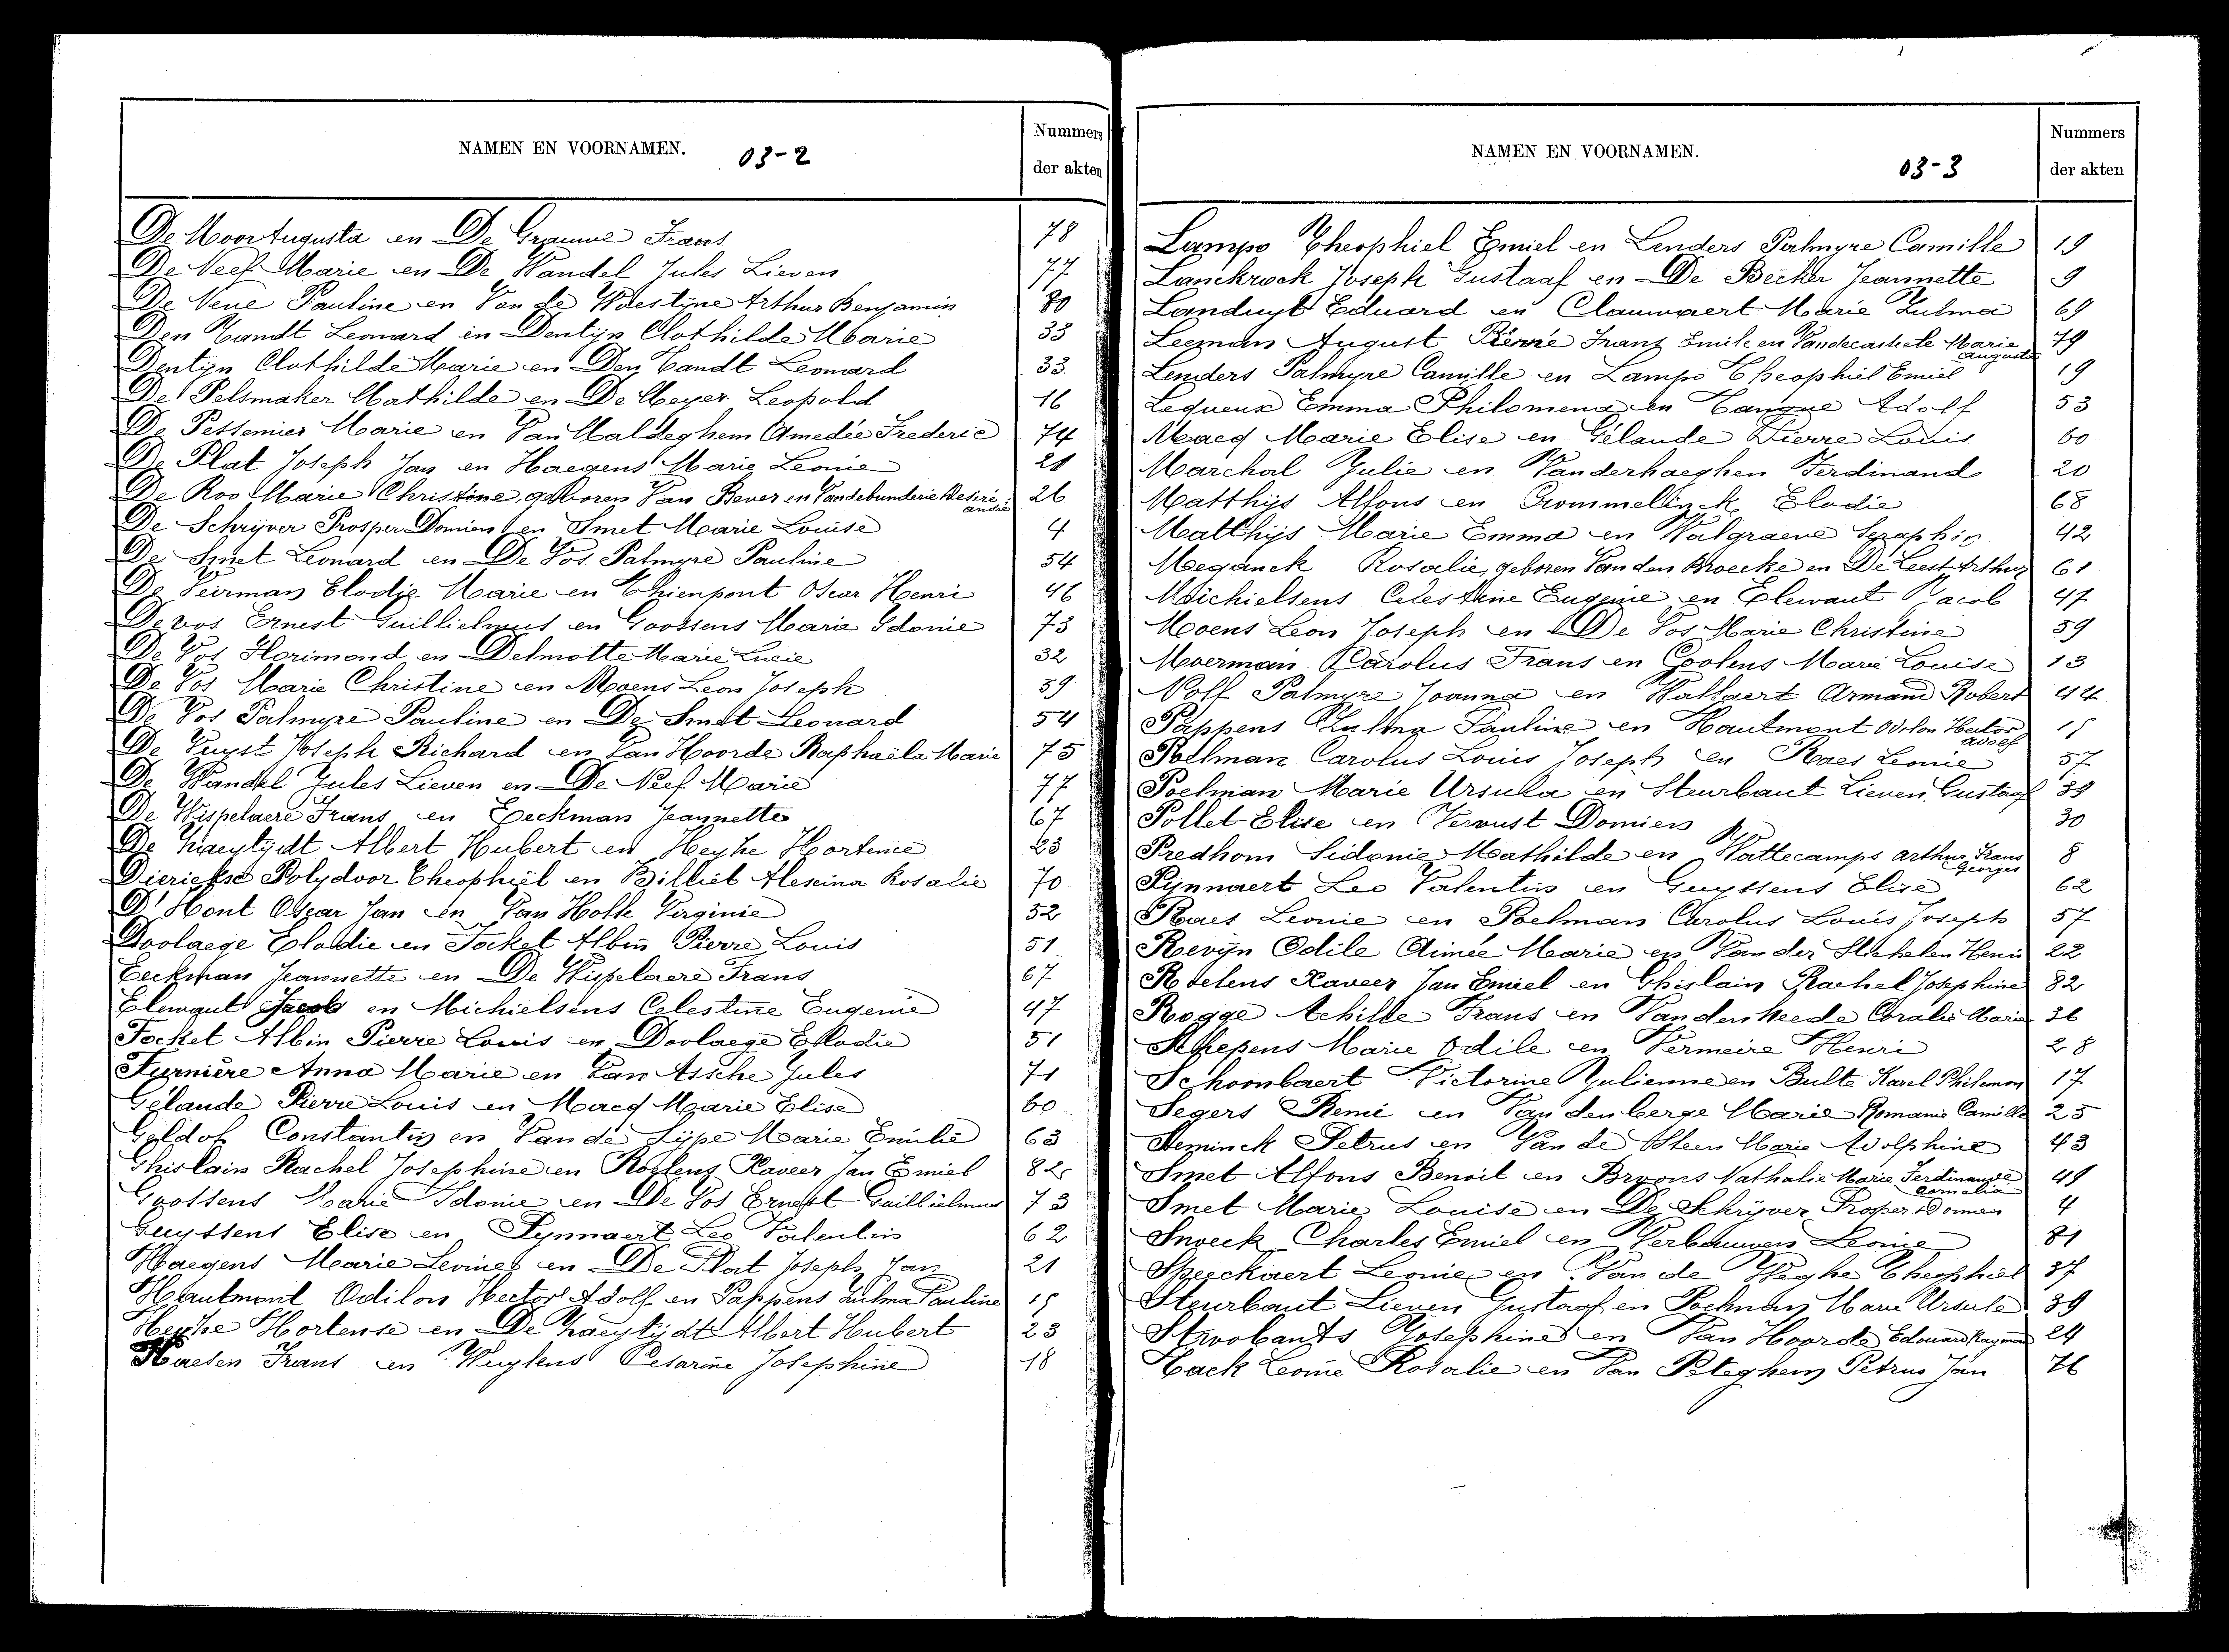 NAMEN EN VOORNAMEN. 03-2
Nummers
der akten
De Moor Augusta en De Frans 78
De Neef Marie en De Wandel Jules Lieven 77
De Neve Pauline en Van de Woestijne Arthur Benjamin 80
Den Handt Leonard en Dentijn Clothilde Marie 33
Dentijn Clothilde Marie en Den Handt Leonard 33.
De Pelsmaker Mathilde en De Meyer Leopold 16
De Pessemier Marie en Van Maldeghem Amedée Frederic 74
De Plat Joseph Jan en Haegens Marie Leonie 21
De Roo Marie Christine, geboren Van Bever en Vandebunderie Desiré 26
andré
De Schrijver Prosper Domien en Smet Marie Louise 4
De Smet Leonard en De Vos Palmyre Pauline 54
De Veirman Elodie Marie en Thienpont Oscar Henri 46
De vos Ernest Guillielmus en Goossens Marie Idonie 73
De Vos Florimond en Delmotte Marie Lucie 32
De Vos Marie Christine en Moens Leon Joseph 59
De Vos Palmyre Pauline en De Smet Leonard 54
De Vuyst Joseph Richard en Van Hoorde Raphaëla Marie 75
De Wandel Jules Lieven en De Neef Marie 77
De Wispelaere Frans en Eeckman Jeannette 67
De Zaeytijdt Albert Hubert en Heyke Hortense 23
Diericksé Polydoor Theophiel en Billiet Alexina Rosalie 70
D'Hont Oscar Jan en Van Holle Virginie 52
Doolaege Elodie en Focket Albin Pierre Louis 51
Eeckman Jeannette en De Wispelaere Frans 67
Elewaut Jacob en Michielsens Celestine Eugenie 47
Focket Albin Pierre Louis en Doolaege Elodie 51
Furnière Anna Marie en Van Assche Jules 71
Gélaude Pierre Louis en Maeg Marie Elise 60
Geldof Constantin en Van de Sijpe Marie Emilie 63
Ghislain Rachel Josephine en Roelens Xaveer Jan Emiel 82
Goossens Marie Idonie en De Vos Ernest Guillielmus 73
Guyssens Elise en Pynnaert Leo Valentin 62
Haegens Marie Leonie en De Plat Joseph Jan 21
Hautmont Odilon Hector Adolf en Pappens Zulma Pauline 15
Heyke Hortense en De Zaeytijdt Albert Hubert 23
Frans en Wuytens Cesarine Josephine 18
NAMEN EN VOORNAMEN. 03-3
Nummers
der akten
Lampo Theophiel Emiel en Lenders Palmyre Camille 19
Lanckrock Joseph Gustaaf en De Becker Jeannette 9
Landuyt Eduard en Clauwaert Marie Zulma 69
Leeman August Pierre Frans Emile en Vandecasteele Marie 79
Augusta
Lenders Palmyre Camille en Lampo Theophiel Emiel 19
Lequeux Emma Philomena en Tanque Adolf 53
Maeg Marie Elise en Gélaude Pierre Louis 60
Marchal Julie en Vanderhaeghen Ferdinand 20
Matthijs Alfons en Crommelinck Elodie 68
Matthijs Marie Emma en Walgraeve Seraphin 42
Meganck Rosalie, geboren Van den Broecke en De Leest Arthur 61
Michielsens Celestine Eugenie en Elewaut Jacob 47
Moens Leon Joseph en De Vos Marie Christine 59
Moerman Carolus Frans en Goolens Marie Louise 13
Nolf Palmyre Joanna en Wallaert Armand Robert 44
Pappens Zulma Pauline en Hautmont Odilon Hector 15
Adolf
Poelman Carolus Louis Joseph en Raes Leonie 57
Poelman Marie Ursula en Steurbaut Lieven Gustaaf 39
Pollet Elise en Vervust Domien 30
Predhom Sidonie Mathilde en Wattecamps Arthur Frans 8
Georges
Pijnnaert Leo Valentin en Guyssens Elise 62
Raes Leonie en Poelman Carolus Louis Joseph 57
Roevijn Odile Aimée Marie en Van der Stichelen Henri 22
Roelens Xaveer Jan Emiel en Ghislain Rachel Josephine 82
Rogge Achille Frans en Vanderheede Coralie Marie 36
Schepens Marie Odile en Vermeire Henri 28
Schoonbaert Victorine Julienne en Bulte Karel Philemon 17
Segers Remi en Van den berge Marie Romanie Camilla 25
Seminck Petrus en Van de Steen Marie Adolphine 43
Smet Alfons Benoit en Broons Nathalie Marie Ferdinande 49
Cornelia
Smet Marie Louise en De Schrijver Prosper Domien 4
Snoeck Charles Emiel en Verbauwen Leonie 81
Speeckaert Leonie en Van de Weghe Theophiel 37
Steurbaut Lieven Gustaaf en Poelman Marie Ursula 39
Stroobants Josephine en Van Hoorde Edouard Raymond 24
Tack Leonie Rosalie en Van Peteghem Petrus Jan 76